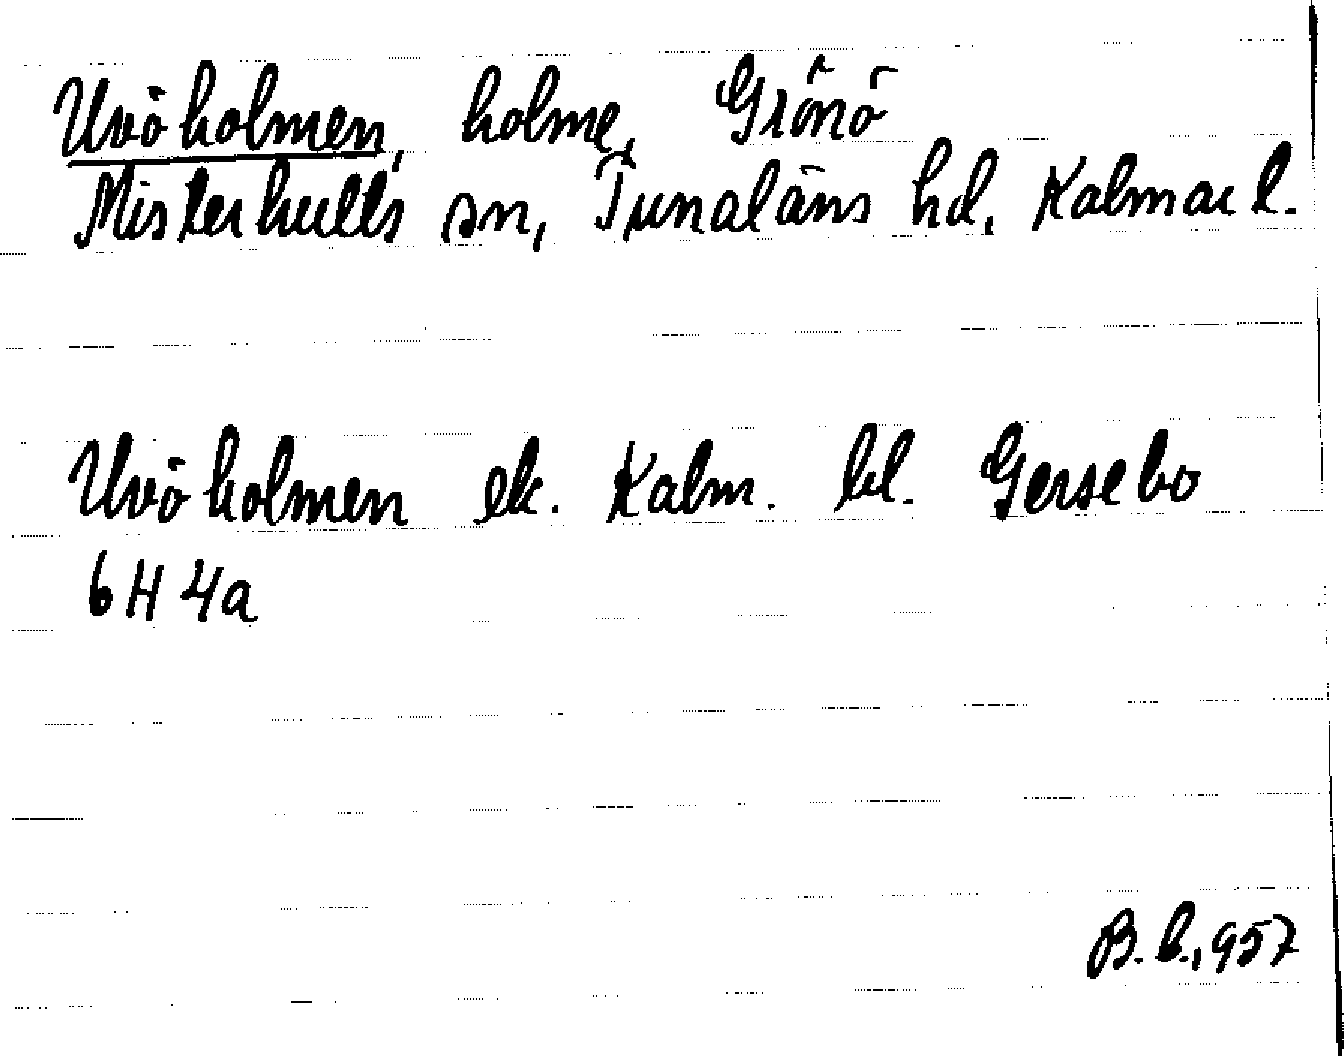 Uvöholmen, holme, Grönö
Misterhults sn, Tunaläns hd, Kalmar l.
Uvöholmen ek. Kalm. bl. Gersebo
6H4a
B.b., 957